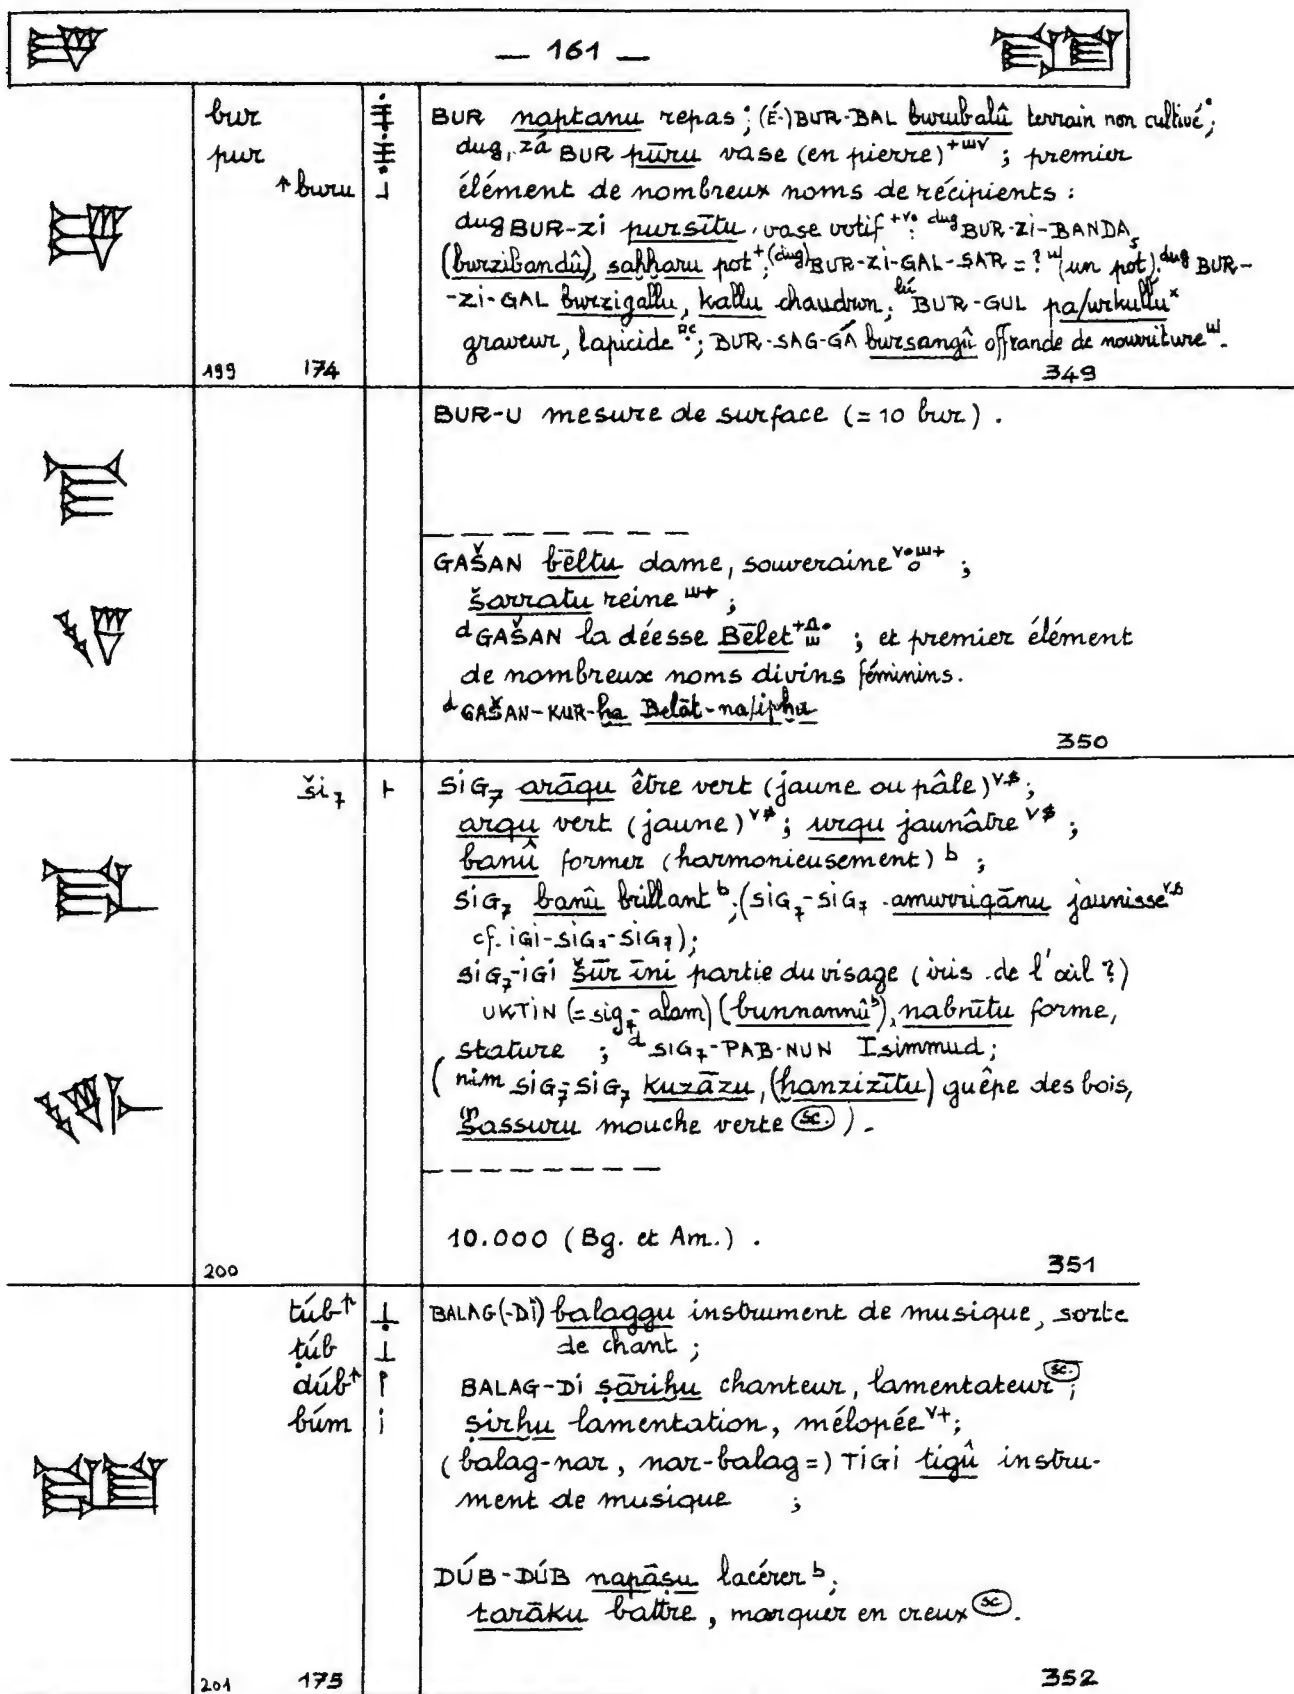 — 161 —
bur
pur
↑ buru
BUR naptanu repas ; (É-)BUR-BAL burubalû terrain non cultivé ;
dug, zá BUR pūru vase (en pierre) ; premier
élément de nombreux noms de récipients :
dug BUR-zi pursītu vase votif ; dug BUR-zi-BANDA₅
(burzibandû), saḫḫaru pot ; (dug) BUR-zi-GAL-SAR = ? (un pot). dug BUR-
-zi-GAL burzigallu, kallu chaudron ; lú BUR-GUL pa/urkullu
graveur, lapicide ; BUR-SAG-GÁ bursangû offrande de nourriture.
199 174 349
BUR-U mesure de surface (= 10 bur) .
GAŠAN bēltu dame, souveraine ;
šarratu reine ;
d GAŠAN la déesse Bēlet ; et premier élément
de nombreux noms divins féminins.
d GAŠAN-KUR-ḫa Belāt-na/ipḫa
350
ši₇
SIG₇ arāqu être vert (jaune ou pâle) ;
arqu vert (jaune) ; urqu jaunâtre ;
banû former (harmonieusement) b ;
SIG₇ banû brillant b ; (SIG₇-SIG₇ amurriqānu jaunisse
cf. IGI-SIG₇-SIG₇) ;
SIG₇-IGI šūr īni partie du visage (iris de l'œil ?)
UKTIN (= sig₇-alam) (bunnannû b), nabnītu forme,
stature ; d SIG₇-PAB-NUN Isimmud ;
( nim SIG₇-SIG₇ kuzāzu, (ḫanzizītu) guêpe des bois,
šassuru mouche verte (sc.) ) .
10.000 (Bg. et Am.) .
200 351
túb↑
ṭúb
dúb↑
búm
BALAG(-DI) balaggu instrument de musique, sorte
de chant ;
BALAG-DI ṣāriḫu chanteur, lamentateur (sc.) ;
ṣirḫu lamentation, mélopée v+ ;
(balag-nar, nar-balag =) TIGI tigû instru-
ment de musique ;
DÚB-DÚB napāṣu lacérer b ;
tarāku battre, marquer en creux (sc.) .
201 175 352